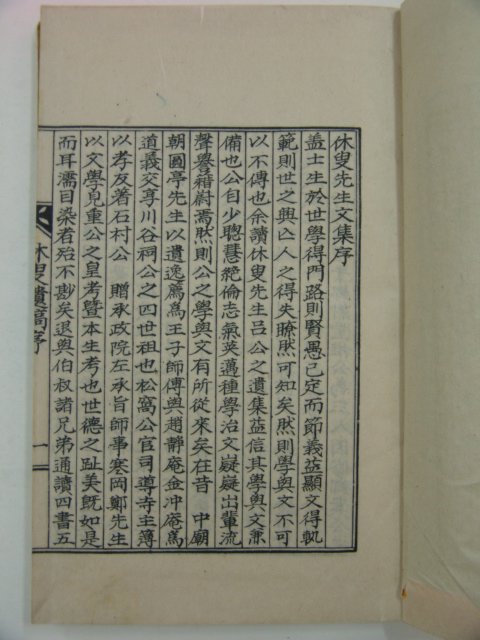 休叟先生文集序
盖士生於世學得門路則賢愚已定而節義益顯文得軌
範則世之興亡人之得失瞭然可知矣然則學與文不可
以不傳也余讀休叟先生呂公之遺集益信其學與文兼
備也公自少聰慧絶倫志氣英邁種學治文嶷嶷出輩流
聲譽藉蔚焉然則公之學與文有所從來矣在昔 中廟
朝圓亭先生以遺逸薦爲王子師傅與趙靜庵金冲庵爲
道義交享川谷祠公之四世祖也松窩公官司導寺主簿
以孝友著石村公 贈承政院左承旨師事寒岡鄭先生
以文學見重公之皇考曁本生考也世德之趾美旣如是
而耳濡目染者殆不尠矣退與伯叔諸兄弟通讀四書五
休叟遺稿序
一